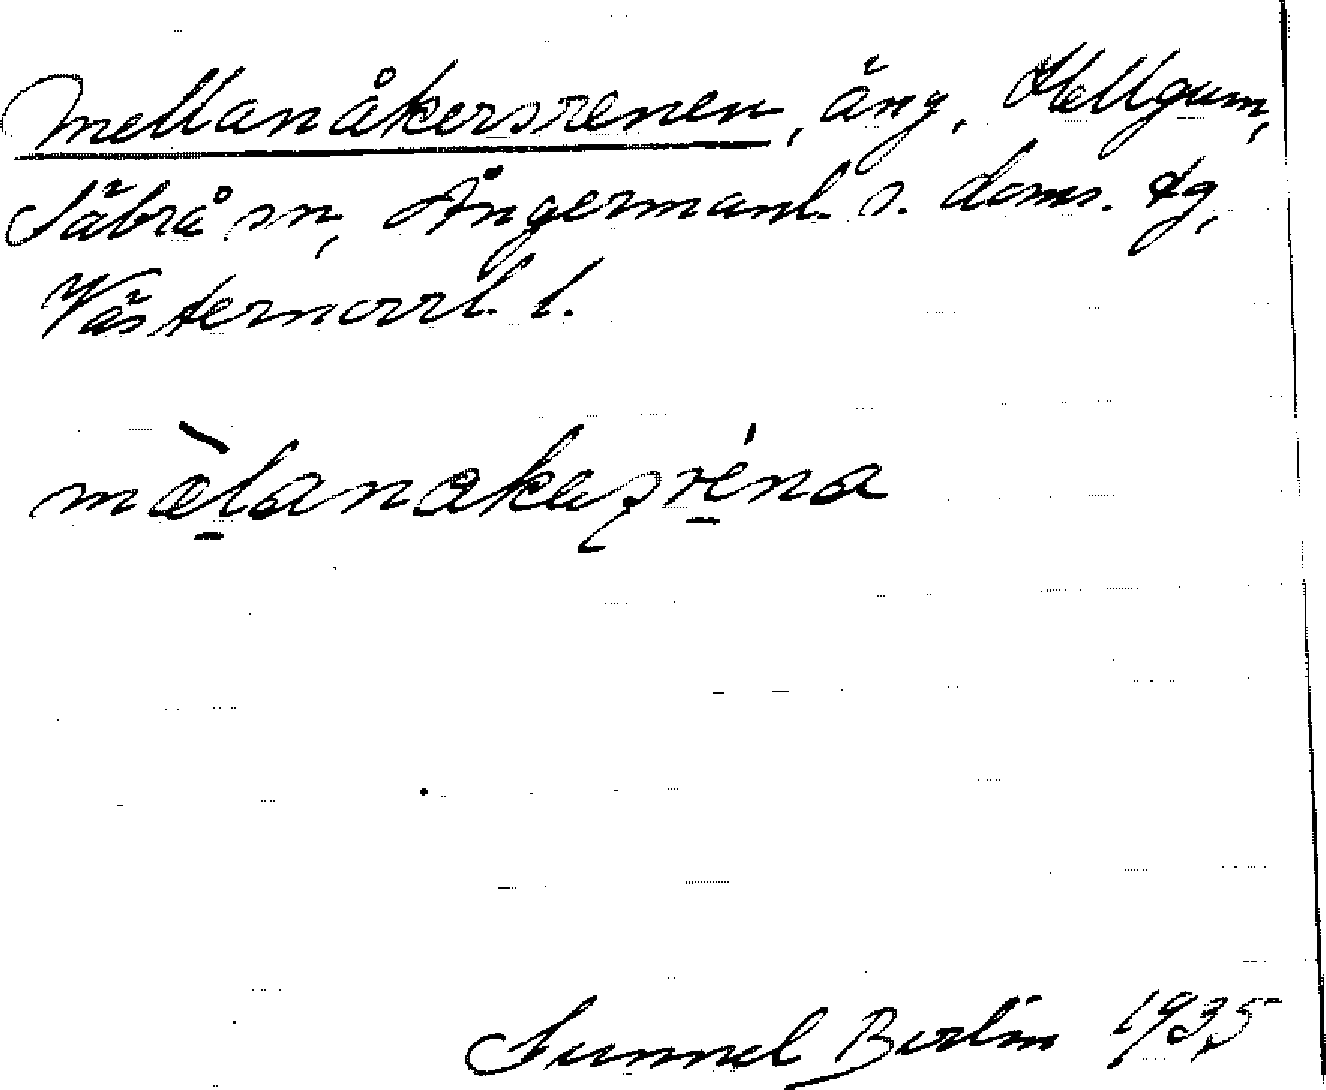 Mellanåkersrenen, äng, Hellgum,
Säbrå sn, Ångermanl. s. doms. tg,
Västernorrl. l.
mèlanakaʂréna
Gunnel Berlin 1935